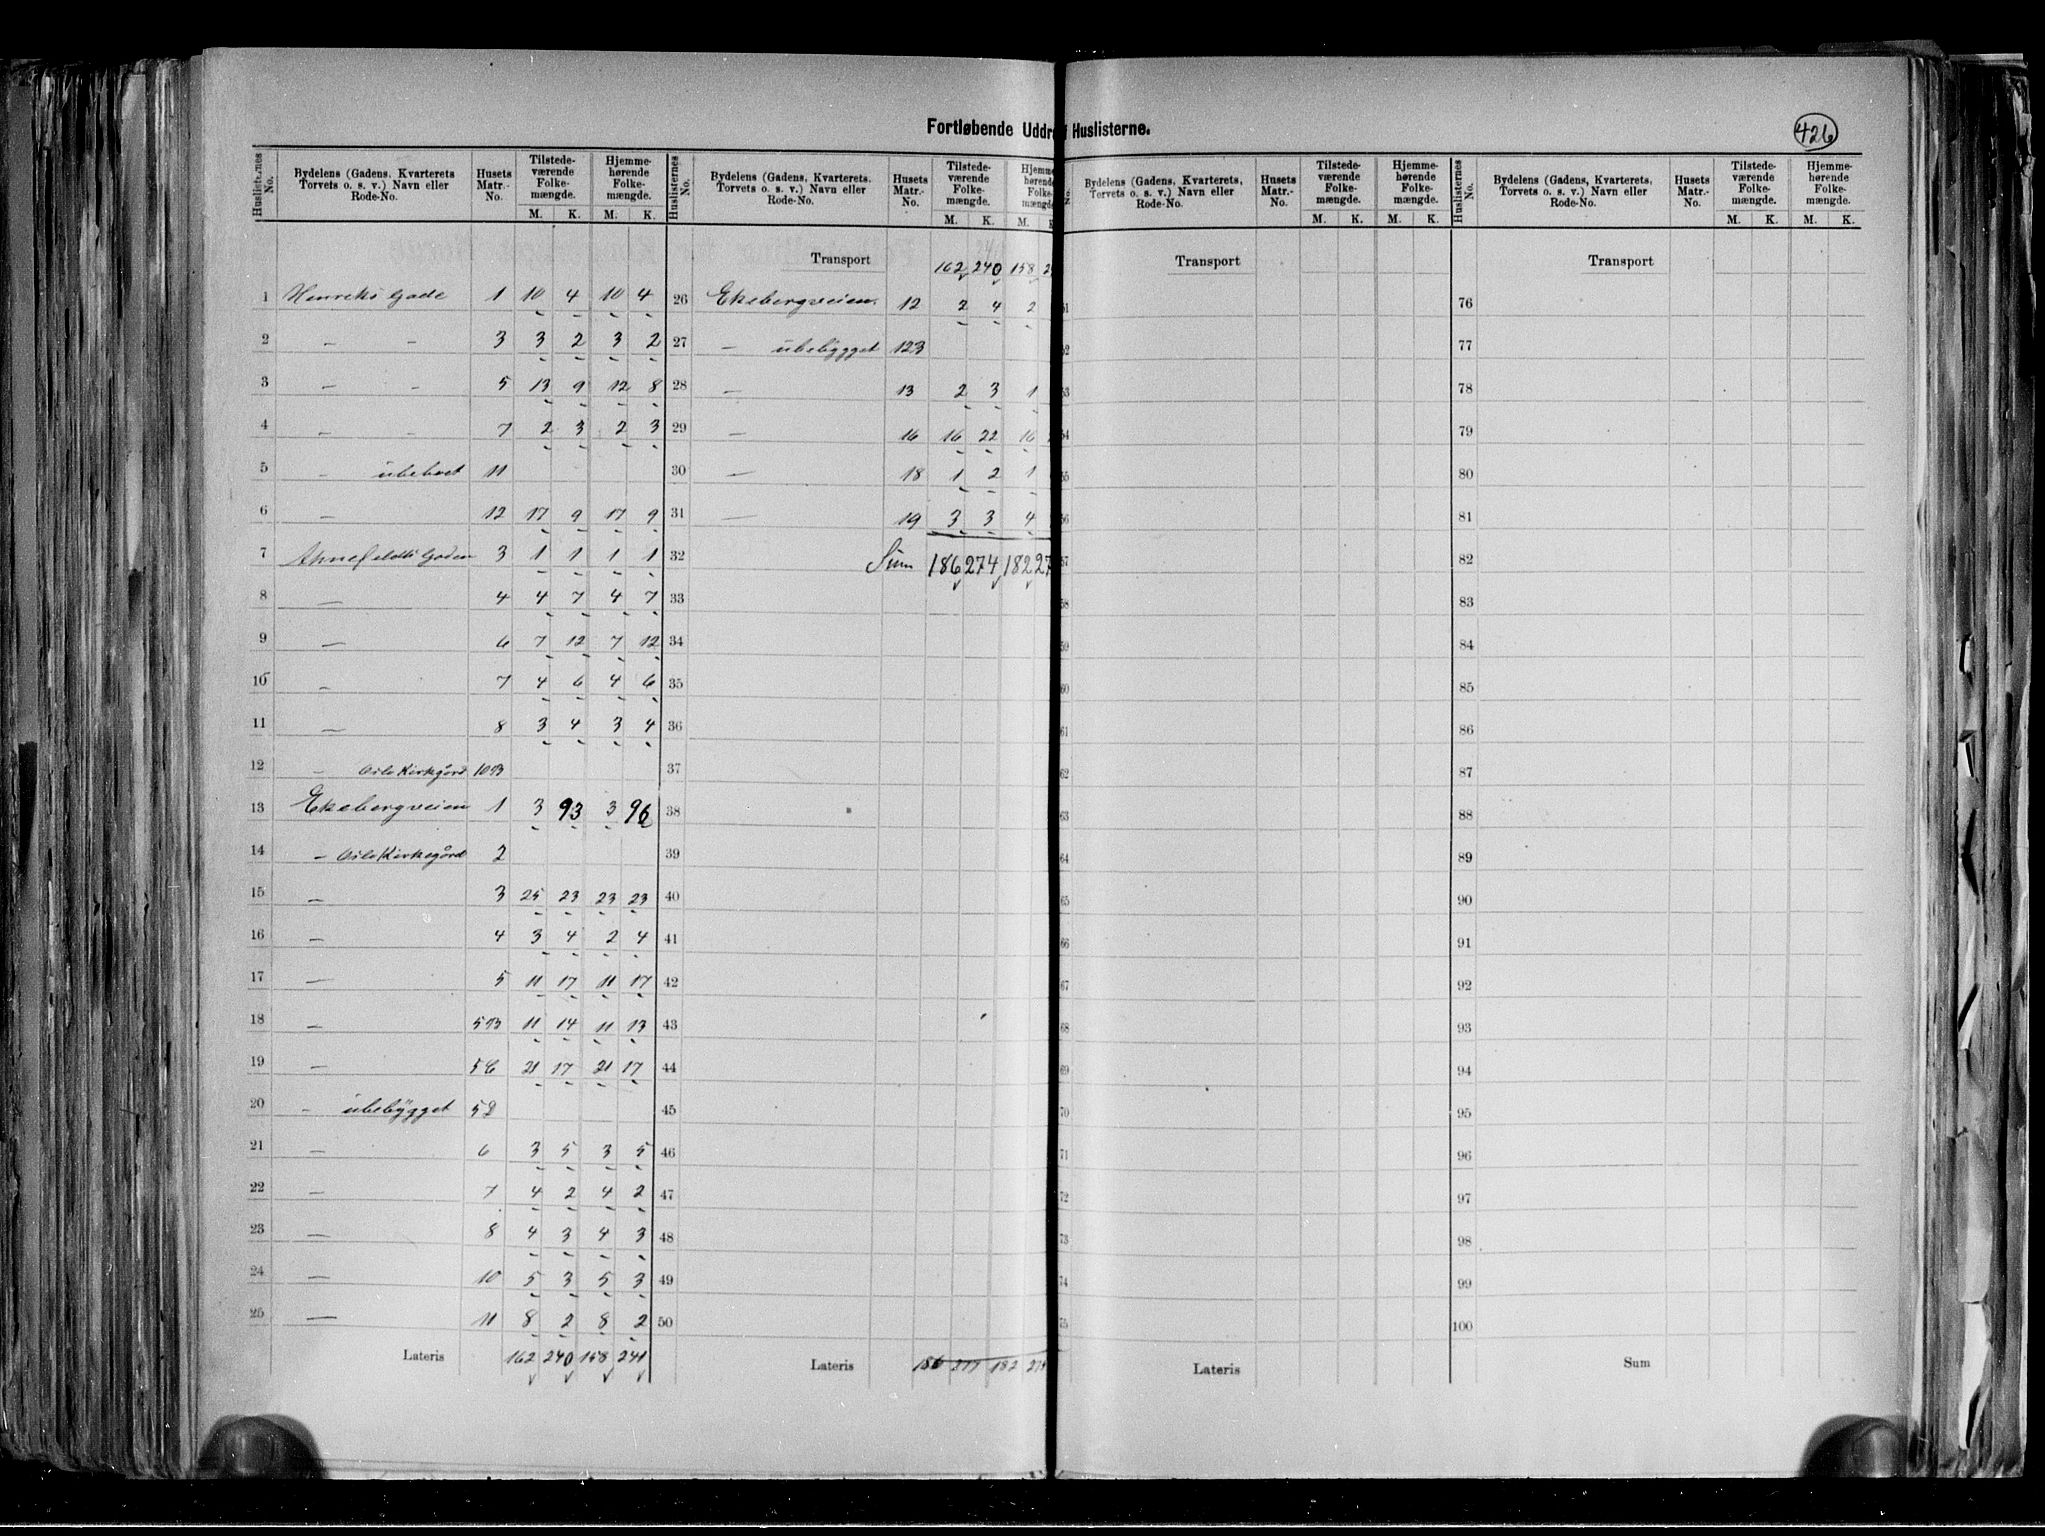 Fortløbende Uddr Huslisterne.
426
Huslisternes No.
Bydelens (Gadens, Kvarterets Torvets o. s. v.) Navn eller Rode-No.
Husets Matr.-No.
Tilstedeværende Folkemængde.
M. K.
Hjemmehørende Folkemængde.
M. K.
1 Henriks Gade 1 10 4 10 4
2 — — 3 3 2 3 2
3 — — 5 13 9 12 8
4 — — 7 2 3 2 3
5 — ubeboet 11
6 — 12 17 9 17 9
7 Ahnefeldts Gaden 3 1 1 1 1
8 — 4 4 7 4 7
9 — 6 7 12 7 12
10 — 7 4 6 4 6
11 — 8 3 4 3 4
12 — Oslo Kirkegård 10B
13 Ekebergveien 1 3 93 3 96
14 — Oslo Kirkegård 2
15 — 3 25 23 23 23
16 — 4 3 4 2 4
17 — 5 11 17 11 17
18 — 5B 11 14 11 13
19 — 5C 21 17 21 17
20 — ubebygget 5D
21 — 6 3 5 3 5
22 — 7 4 2 4 2
23 — 8 4 3 4 3
24 — 10 5 3 5 3
25 — 11 8 2 8 2
Lateris 162 240 158 241
Huslisternes No.
Bydelens (Gadens, Kvarterets, Torvets o. s. v.) Navn eller Rode-No.
Husets Matr.-No.
Tilstedeværende Folkemængde.
M. K.
Hjemme hørende Folkemængde
M.
Transport 162 240 158
26 Ekebergveien 12 2 4 2
27 — ubebygget 123
28 — 13 2 3 1
29 — 16 16 22 16
30 — 18 1 2 1
31 — 19 3 3 4
32 Sum 186 274 182 27
33
34
35
36
37
38
39
40
41
42
43
44
45
46
47
48
49
50
Lateris 186 277 182
Bydelens (Gadens, Kvarterets, Torvets o. s. v.) Navn eller Rode-No.
Husets Matr.-No.
Tilstedeværende Folkemængde.
M. K.
Hjemmehørende Folkemængde.
M. K.
Transport
51
52
53
54
55
56
57
58
59
60
61
62
63
64
65
66
67
68
69
70
71
72
73
74
75
Lateris
Huslisternes No.
Bydelens (Gadens, Kvarterets, Torvets o. s. v.) Navn eller Rode-No.
Husets Matr.-No.
Tilstedeværende Folkemængde.
M. K.
Hjemmehørende Folkemængde.
M. K.
Transport
76
77
78
79
80
81
82
83
84
85
86
87
88
89
90
91
92
93
94
95
96
97
98
99
100
Sum